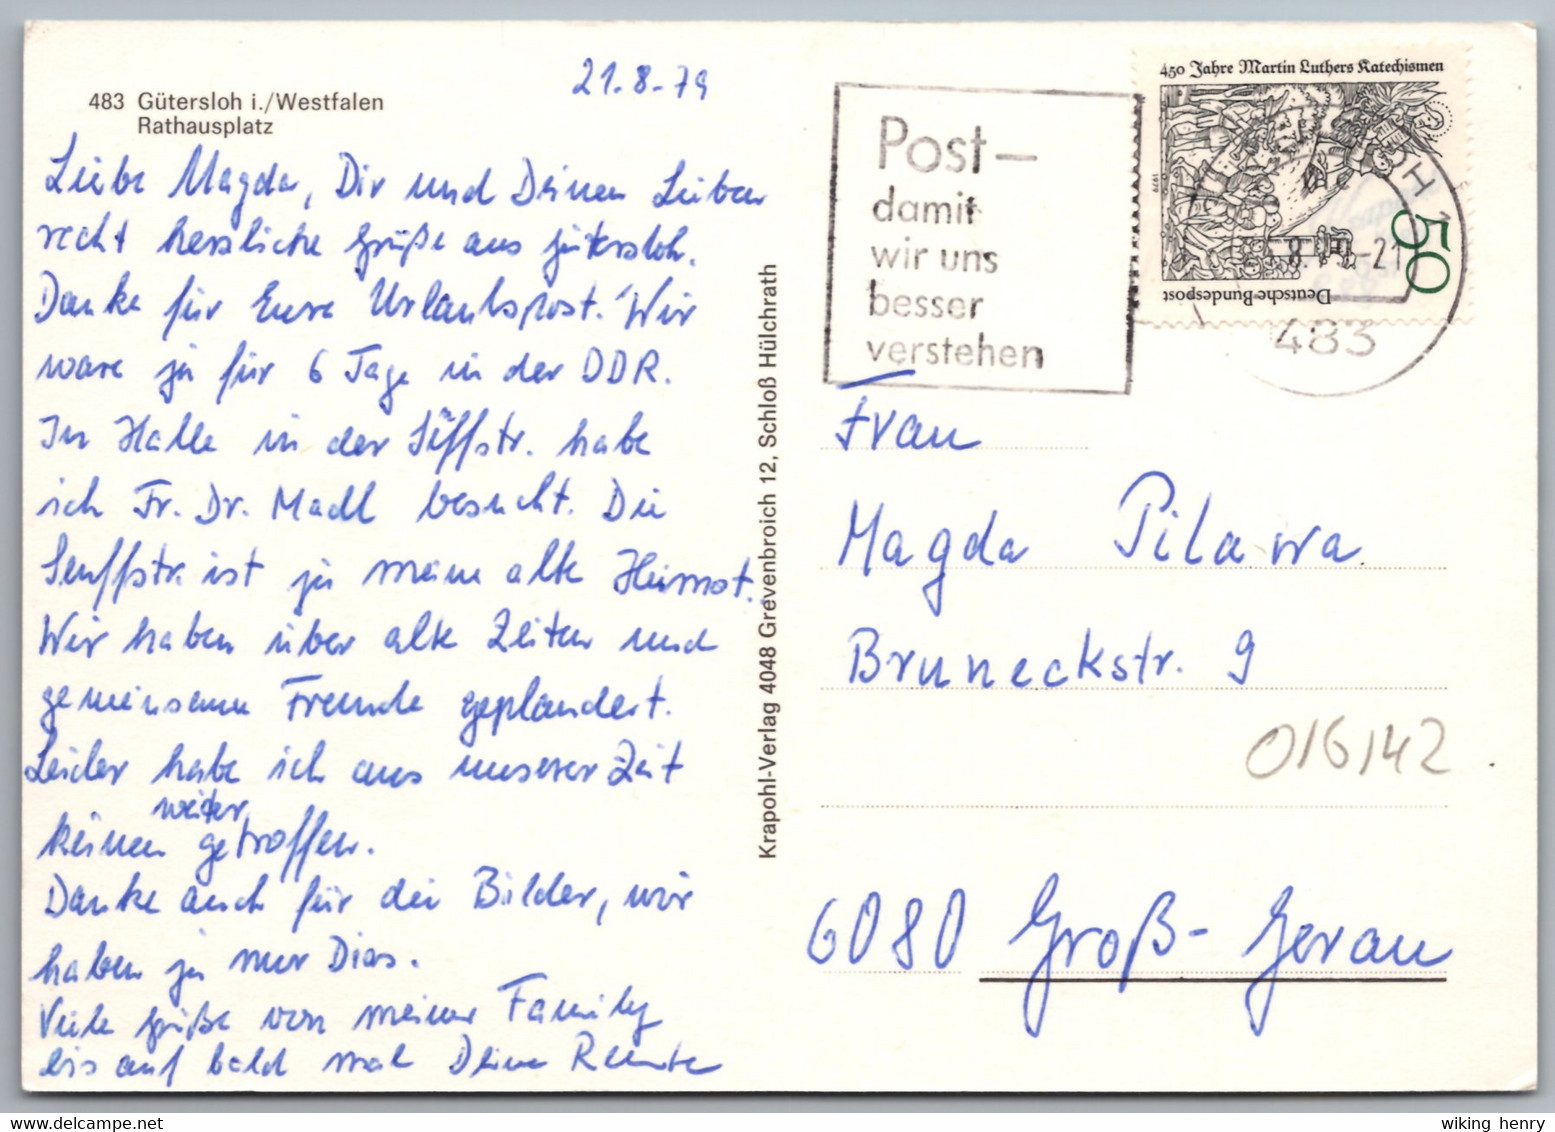 483 Gütersloh i./Westfalen
Rathausplatz
21.8.79
Liebe Magda, Dir und Deinen Lieben
recht herzliche Grüße aus Gütersloh.
Danke für Eure Urlaubspost. Wir
ware ja für 6 Tage in der DDR.
In Halle in der Seuffstr. habe
ich Fr. Dr. Madl besucht. Die
Seuffstr. ist ja meine alte Heimat.
Wir haben über alte Zeiten und
gemeinsame Freunde geplaudert.
Leider habe ich aus unserer Zeit
weiter
keinen getroffen.
Danke auch für die Bilder, wir
haben ja nur Dias.
Viele Grüße von meiner Family
bis auf bald mal Deine Renate
Krapohl-Verlag 4048 Grevenbroich 12, Schloß Hülchrath
Post–
damit
wir uns
besser
verstehen
450 Jahre Martin Luthers Katechismen
1979
50
Deutsche Bundespost
483
Frau
Magda Pilawa
Bruneckstr. 9
016142
6080 Groß-Gerau
wiking henry